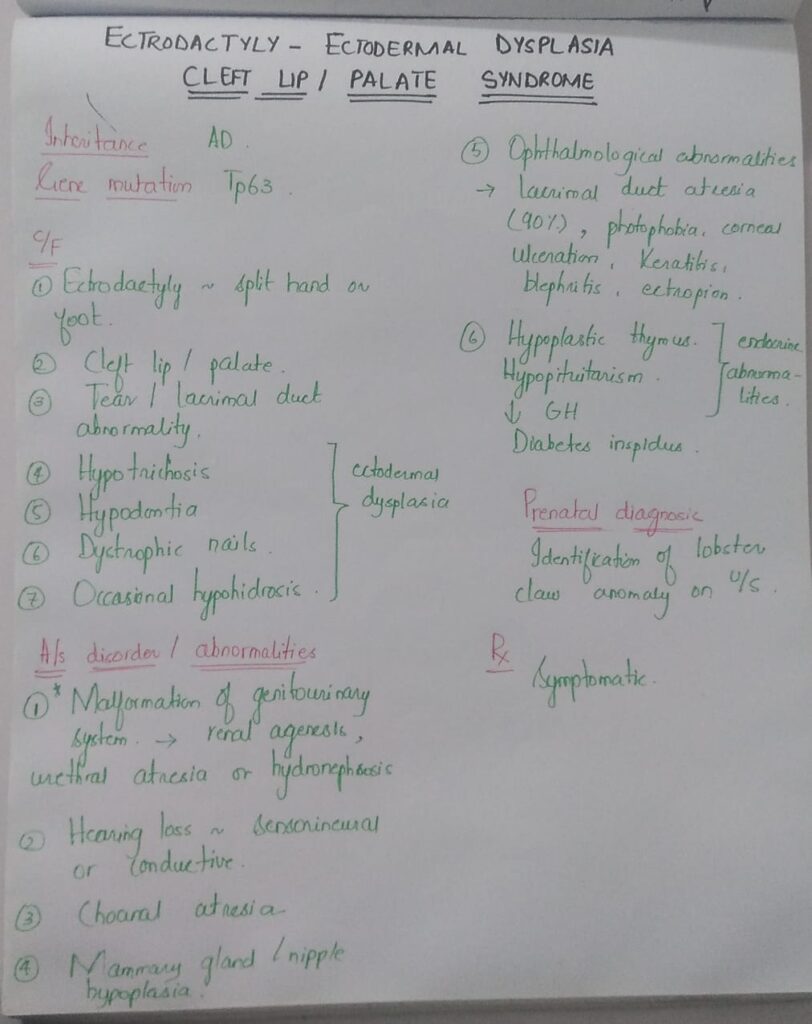 ECTRODACTYLY - ECTODERMAL DYSPLASIA
CLEFT LIP / PALATE SYNDROME
Inheritance AD.
Gene mutation Tp63.
C/F
① Ectrodactyly ~ split hand or
foot.
② Cleft lip / palate.
③ Tear / lacrimal duct
abnormality.
④ Hypotrichosis
⑤ Hypodontia
⑥ Dystrophic nails.
⑦ Occasional hypohidrosis.
ectodermal
dysplasia
A/s disorder / abnormalities
①* Malformation of genitourinary
system. → renal agenesis,
urethral atresia or hydronephrosis
② Hearing loss ~ sensorineural
or conductive.
③ Choanal atresia
④ Mammary gland / nipple
hypoplasia.
⑤ Ophthalmological abnormalities
→ lacrimal duct atresia
(90%), photophobia, corneal
ulceration, Keratitis,
blephritis, ectropion.
⑥ Hypoplastic thymus.
Hypopituitarism.
↓ GH
Diabetes inspidus.
endocrine
abnorma-
lities.
Prenatal diagnosis
Identification of lobster
claw anomaly on U/S.
Rx
Symptomatic.